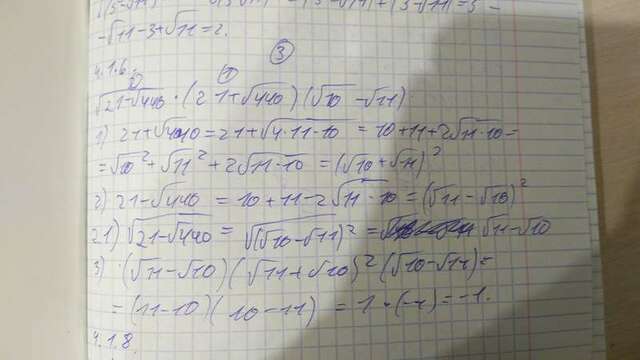 -√11-3+√11=2.
③
4.1.6. ② ①
√(21-√440) · (21+√440)(√10-√11)
1) 21+√440=21+√(4·11·10) = 10+11+2√(11·10)=
=√10²+√11²+2√(11·10) =(√10+√11)²
2) 21-√440 = 10+11-2√(11·10)=(√11-√10)²
21) √(21-√440) = √((√10-√11)²) = √11-√10
3) (√11-√10)(√11+√10)²(√10-√11)=
=(11-10)(10-11) = 1·(-1)=-1.
4.1.8.